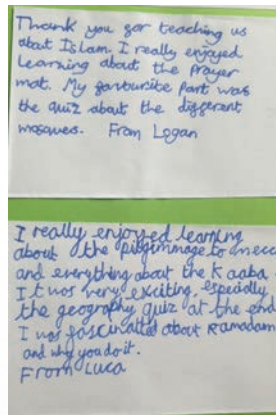 Thank you for teaching us
about Islam. I really enjoyed
learning about the prayer
mat. My favourite part was
the quiz about the different
mosques. From Logan
I really enjoyed learning
about the pilgrimmage to mecc
and everything about the Kaaba.
It was very exciting especially
the geography quiz at the end
I was fascinatted about Ramadam
and why you do it.
From Luca